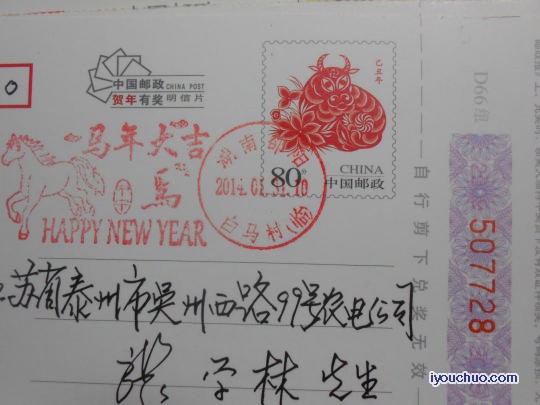 中国邮政 CHINA POST
贺年有奖 明信片
己丑年
CHINA
80分 中国邮政
马年大吉
馬
HAPPY NEW YEAR
湖南邵阳
2014.01.31.10
白马村(临)
0
江苏省泰州市吴州西路99号农电公司
张学林先生
自行剪下兑奖无效
D66组
507728
iyouchuo.com